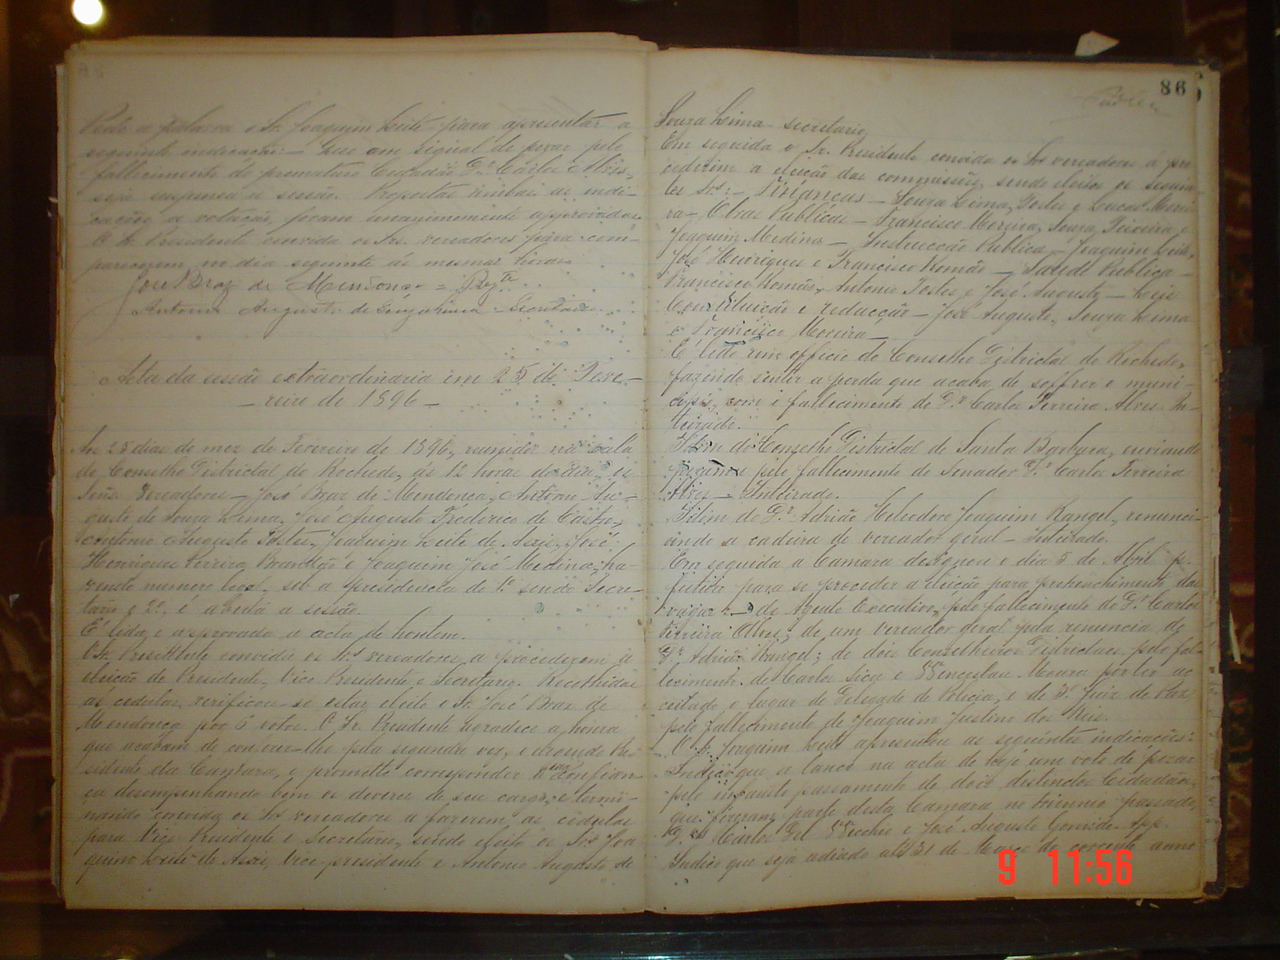 Pede a palavra o Sr. Joaquim Leite para apresentar a
seguinte indicação: — em signal de pezar pelo
fallecimento do prematuro Cidadão Dr. Carlos Alves,
seja suspensa a sessão. Propostas de indi-
cação a votação, foram unanimemente approvadas
O Sr. Presidente convida os Srs. vereadores para com-
parecerem no dia seguinte ás mesmas horas
José Braz de Mendonça = Presidte
Antonio Augusto de Souza Lima - Secretario
Acta da sessão extraordinaria em 25 de Feve-
— reiro de 1896 —
Aos 25 dias do mez de Fevereiro de 1896, reunidos na sala
do Conselho Districtal do Rochedo, ás 12 horas do dia, os
Senrs Vereadores — José Braz de Mendonça, Antonio Au-
gusto de Souza Lima, José Augusto Frederico de Castro,
Antonio Augusto Tostes, Joaquim Leite de Assis, José
Henriques Ferreira Brandão e Joaquim José Medina, ha-
vendo numero legal, sob a presidencia do 1º sendo Secre-
tario o 2º, é aberta a sessão.
É lida e approvada a acta de hontem.
O Sr. Presidente convida os Srs vereadores a procederem á
eleição de Presidente, Vice Presidente e Secretario. Recolhidas
as cedulas, verificou-se estar eleito o Sr. José Braz de
Mendonça por 6 votos. O Sr. Presidente agradece a honra
que acabam de conferir-lhe pela segunda vez, elegendo Pre-
sidente da Camara, e promette corresponder a essa confian
ça desempenhando bem os deveres de seu cargo, e termi-
nando convida os Srs vereadores a fazerem as cedulas
para Vice Presidente e Secretario, sendo eleitos os Srs Joa
quim Leite de Assis, Vice presidente e Antonio Augusto de
86
Souza Lima secretario
Em seguida o Sr. Presidente convida os Srs vereadores a pro
cederem a eleição das commissões, sendo eleitos os seguin
tes Srs: — Finanças — Souza Lima, Tostes e Lucas Morei
ra — Obras Publicas — Francisco Moreira, Souza Teixeira e
Joaquim Medina — Instrucção Publica — Joaquim Leite,
José Henriques e Francisco Romão — Saude Publica —
Francisco Romão, Antonio Tostes e José Augusto — Leis
Constituição e redacção — José Augusto, Souza Lima
e Francisco Moreira —
É lido um officio do Conselho Districtal do Rochedo,
fazendo sentir a perda que acaba de soffrer o muni-
cipio, com o fallecimento do Dr Carlos Ferreira Alves In-
teirado.
Idem do Conselho Districtal de Santa Barbara, enviando
pezames pelo fallecimento do Senador Dr Carlos Ferreira
Alves — Inteirado.
Idem do Dr Adrião Heliodoro Joaquim Rangel, renunci-
ando a cadeira de vereador geral — Inteirado.
Em seguida a Camara designou o dia 5 de Abril p.
futuro para se proceder a eleição para prehenchimento das
vagas: — de Agente Executivo, pelo fallecimento do Dr Carlos
Ferreira Alves; de um vereador geral pela renuncia do
Dr Adrião Rangel; de dois Conselheiros Districtaes pelo fal-
lecimento de Carlos e Wenceslau Moura por ter ac
ceitado o lugar de Delegado de Policia, e de 3º Juiz de Paz
pelo fallecimento de Joaquim Justino dos Reis.
O Sr Joaquim Leite apresentou as seguintes indicações:
Indico que se lance na acta de hoje um voto de pezar
pelo passamento de dois distinctos Cidadãos
que fizeram parte desta Camara no triennio passado,
Carlos Del Vecchio e José Augusto App.
Indico que seja adiado até 31 de Março do corrente anno
9 11:56